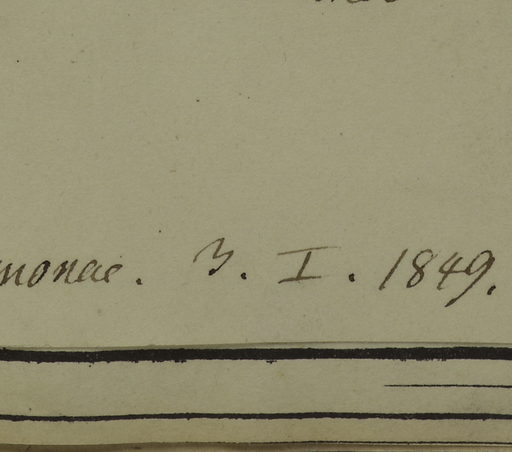 monae. 3. I. 1849.